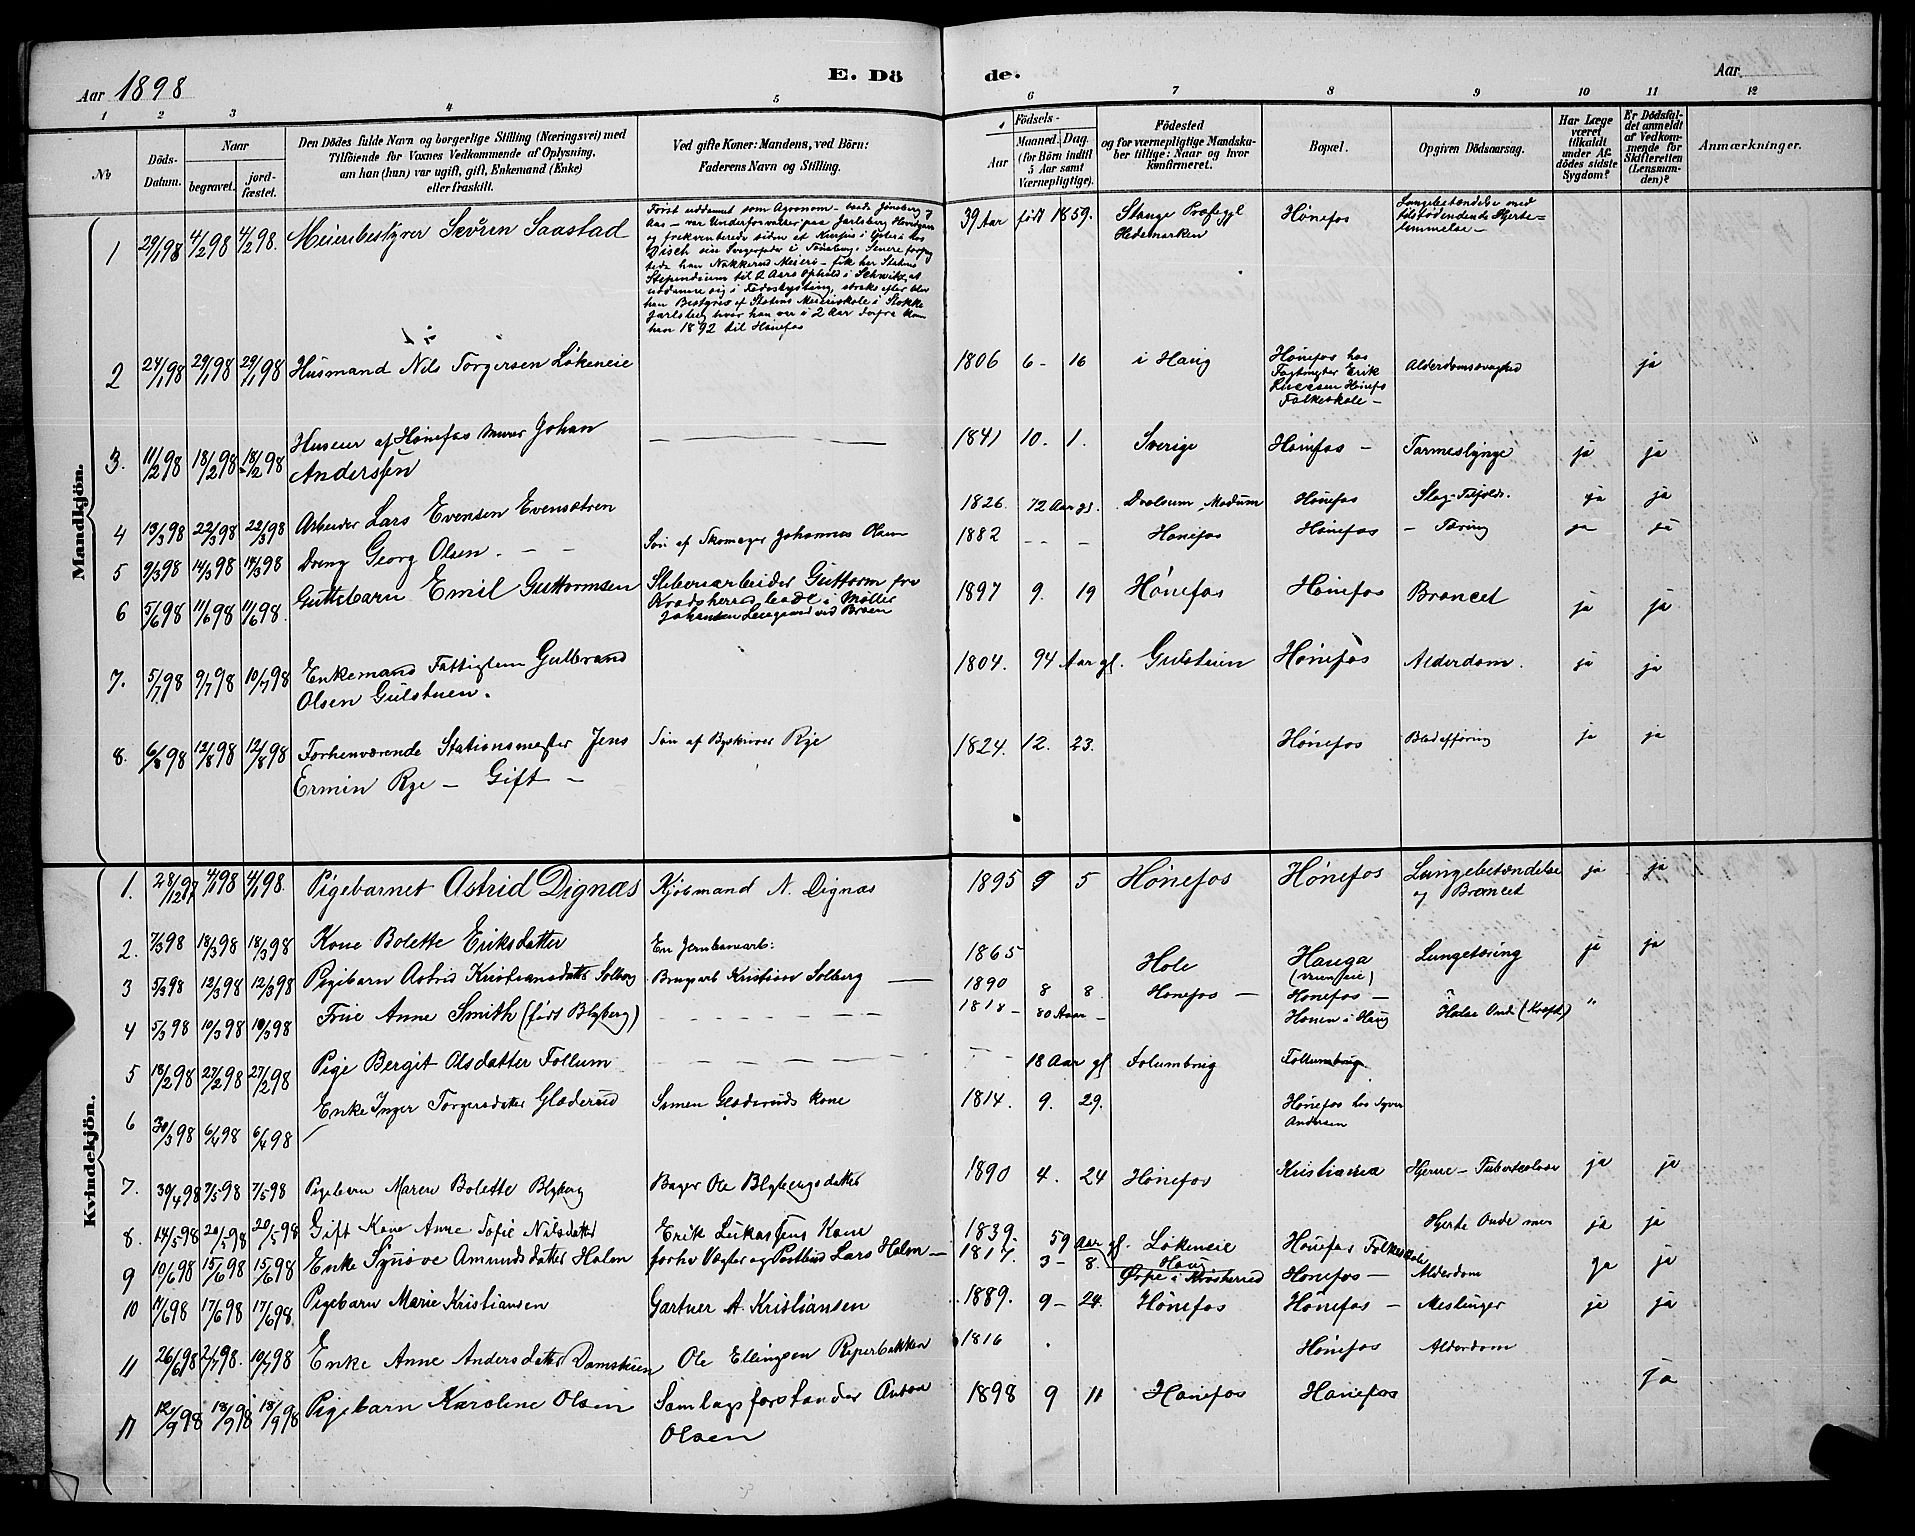 Aar 1898
E. Dö
de.
Aar
1 2 3 4 5 6 7 8 9 10 11 12
No
Döds-Datum.
Naar
begravet.
jord-fæstet.
Den Dödes fulde Navn og borgerlige Stilling (Næringsvei) med
Tilföiende for Voxnes Vedkommende af Oplysning,
om han (hun) var ugift, gift, Enkemand (Enke)
eller fraskilt.
Ved gifte Koner: Mandens, ved Börn:
Faderens Navn og Stilling.
Födsels-
Aar
Maaned.
Dag.
(for Börn indtil
5 Aar samt
Værnepligtige).
Födested
og for værnepligtige Mandska-
ber tillige: Naar og hvor
konfirmeret.
Bopæl.
Opgiven Dödsaarsag.
Har Læge
været
tilkaldt
under Af-
dödes sidste
Sygdom?
Er Dödsfal-
det anmeldt
af Vedkom-
mende for
Skifteretten
(Lensman-
den)?
Anmærkninger.
Mandkjön.
1 29/1 98 4/2 98 4/2 98. Meieribestyrer Sevrin Saastad
Først uddannet som Agronom – baade Jønsberg og
Aas – var Underforvalter paa Jarlsberg Hovdgaard
og frekventerede siden et Kursus i Ysteri hos
Disch sin Svigerfader i Tønsberg. Senere forpag
tede han Nakkerud Meieri – fik her Statens
Stipendium til 2 Aars Ophold i Schweiz, at
uddanne sig i Fedeostystning, straks efter blev
han Bestyrer af Statens Meieriskole i Stokke
Jarlsberg hvor han var i 2 Aar derfra kom
han 1892 til Hønefos
39 Aar født 1859. Stange Præstegjl
Hedemarken
Hønefos
Lungebetændelse med
tilstødendende Hjerte=
lammelse –
2 24/1 98 29/1 98 29/1 98 Husmand Nils Torgersen Løkeneie 1806 6- 16 i Haug
Hønefos hos
Erik
Hønefos
Folkeskole –
Alderdomssvaghed ja
3. 11/2 98 18/2 98 18/2 98 Huseier af Hønefos Murer Johan
Andersen
1841 10. 1. Sverige Hønefos – Tarmeslynge ja ja
4 13/3 98 22/3 98 22/3 98 Arbeider Lars Evensen Evensætren 1826. 72 Aar gl. Modum Hønefos Slag-Tilfælde. ja ja
5 9/3 98 14/3 98 14/3 98 Dreng Georg Olsen. – – Søn af Skomager Johannes Olsen 1882 -- – Hønefos Hønefos – Tæring ja ja
6 5/6 98 11/6 98 11/6 98. Guttebarn Emil Guttormsen Sliberiarbeider Guttorm fra
Krødsherred boede i Møller
Johansen Leiegaard ved Broen
1897 9. 19 Hønefos Hønefos Broncet ja ja
7. 5/7 98 9/7 98 10/7 98 Enkemand Fattiglem Gulbrand
Olsen Gulstuen.
1804. 94 Aar gl. Gulstuen Hønefos Alderdom. ja ja
8. 6/8 98 12/8 98 12/8 98 Forhenværende Stationsmester Jens
Ermin Rye – Gift –
Søn af Byskriver Rye 1824. 12. 23. Hønefos ja ja
Kvindekjön.
1. 28/12 97 4/1 98 4/1 98. Pigebarnet Astrid Dignæs Kjøbmand N. Dignæs 1895 9 5 Hønefos Hønefos Lungebetændelse
og Broncet
ja ja
2. 7/3 98 18/3 98 18/3 98 Kone Bolette Eriksdatter En Jernbanearb: 1865 Hole Hauga Lungetæring ja ja
3 5/3 98 12/3 98 12/3 98 Pigebarn Astrid Kristiansdatter Solberg Brugsarb Kristian Solberg – 1890 8 8. Hønefos – Hønefos –
4 5/3 98 10/3 98 10/3 98 Frue Anne Smith (født Blyberg) 1818 – 80 Aar – Hønen i Haug Halse Onde (Kræft) "
5 18/2 98 27/2 98 27/2 98 Pige Bergit Olsdatter Follum 18 Aar gl Folumbrug Follumbrug
6 30/3 98 6/4 98 6/4 98 Enke Inger Torgersdatter Gladerud Simen Gladeruds kone 1814. 9. 29. Hønefos hos Syver
Andersen
7. 30/4 98 7/5 98 7/5 98 Pigebarn Maren Bolette Blyberg Bager Ole Blybergs datter 1890 4. 24 Hønefos Kristiania Hjerne-Tuberkulose ja ja
8. 14/5 98 20/5 98 20/5 98 Gift Kone Anne Sofie Nilsdatter Erik Lukassens Kone 1839. 59 Aar gl. Løkeneie
Haug
Hønefos Folkeskole Hjerte Onde ja ja
9 10/6 98 15/6 98 15/6 98 Enke Synøve Amundsdatter Holm forhv Vægter og Postbud Lars Holm – 1817. 3 – 8 i Krødsherred Hønefos – Alderdom ja ja
10 11/6 98 17/6 98 17/6 98. Pigebarn Marie Kristiansen Gartner A. Kristiansen 1889. 9 – 24. Hønefos Hønefos – Meslinger ja ja
11 26/6 98 2/7 98. 10/7 98 Enke Anne Andersdatter Damstuen Ole Ellingsen Reperbakken 1816 Hønefos Alderdom
11 12/9 98 18/9 98 18/9 98 Pigebarn Karoline Olsen Samlagsforstander Anton
Olsen
1898 9 11 Hønefos Hønefos ja